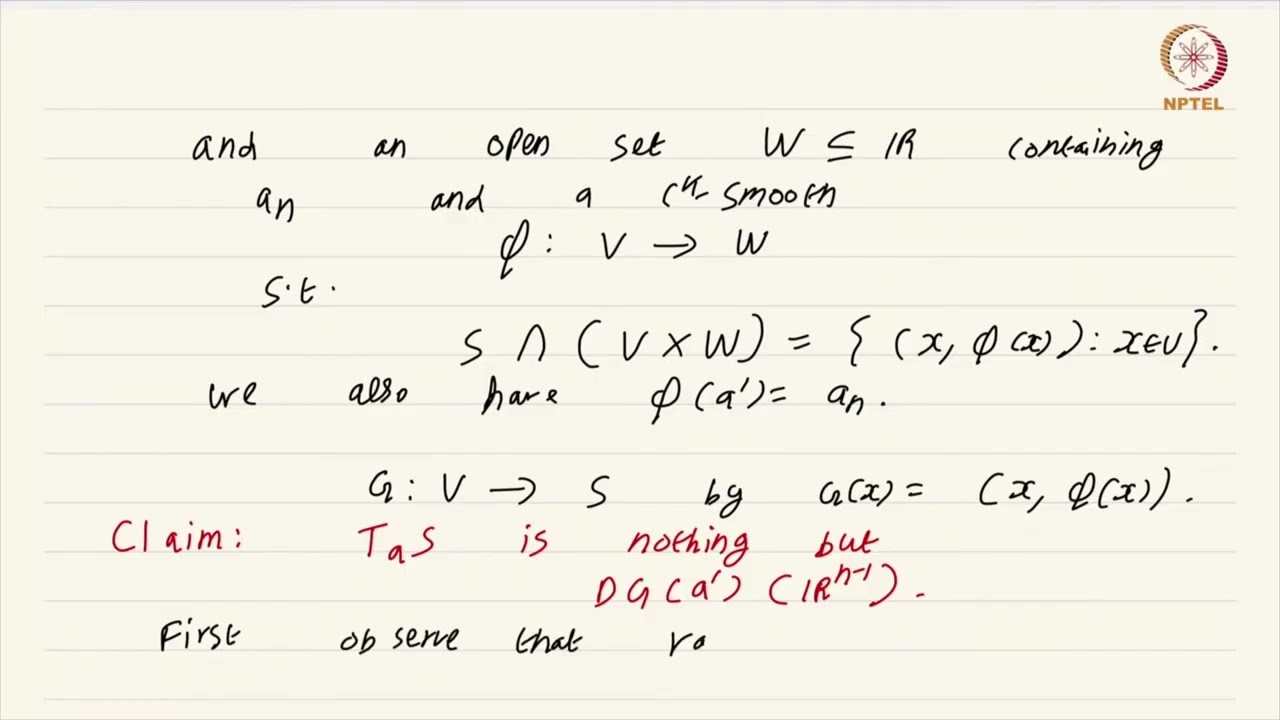 NPTEL
and an open set W ⊆ ℝ containing
aₙ and a Cᵏ-smooth
φ : V → W
s.t.
S ∩ (V × W) = { (x, φ(x)) : x ∈ V }.
we also have φ(a') = aₙ.
G : V → S by G(x) = (x, φ(x)).
Claim: TₐS is nothing but
DG(a') (ℝⁿ⁻¹).
First observe that